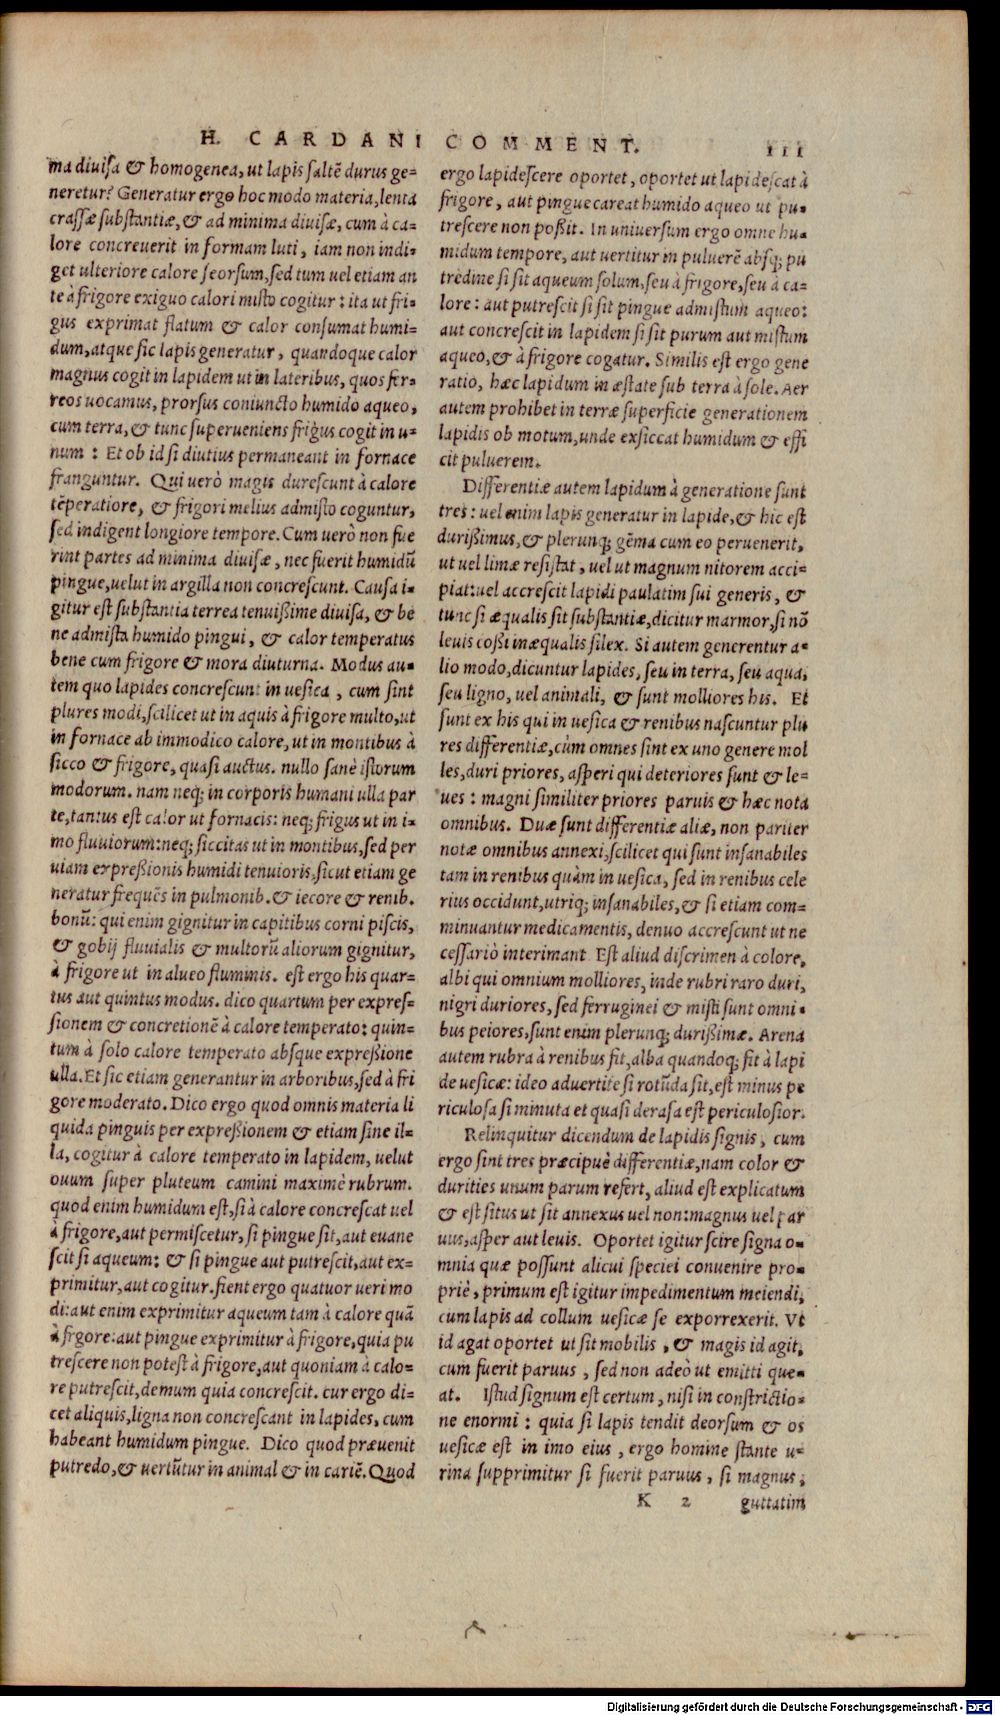 H. CARDANI COMMENT. 111
ma diuisa & homogenea, ut lapis saltē durus ge=
neretur? Generatur ergo hoc modo materia, lenta
crassæ substantiæ, & ad minima diuisæ, cum à ca=
lore concreuerit in formam luti, iam non indi=
get ulteriore calore seorsum, sed tum uel etiam an
te à frigore exiguo calori misto cogitur: ita ut fri=
gus exprimat flatum & calor consumat humi=
dum, atque sic lapis generatur, quandoque calor
magnus cogit in lapidem ut in lateribus, quos fer=
reos uocamus, prorsus coniuncto humido aqueo,
cum terra, & tunc superueniens frigus cogit in u=
num: Et ob id si diutius permaneant in fornace
franguntur. Qui uerò magis durescunt à calore
tēperatiore, & frigori melius admisto coguntur,
sed indigent longiore tempore. Cum uerò non fue
rint partes ad minima diuisæ, nec fuerit humidū
pingue, uelut in argilla non concrescunt. Causa i=
gitur est substantia terrea tenuißime diuisa, & be
ne admista humido pingui, & calor temperatus
bene cum frigore & mora diuturna. Modus au=
tem quo lapides concrescunt in uesica, cum sint
plures modi, scilicet ut in aquis à frigore multo, ut
in fornace ab immodico calore, ut in montibus à
sicco & frigore, quasi auctus. nullo sanè istorum
modorum. nam neq; in corporis humani ulla par
te, tantus est calor ut fornacis: neq; frigus ut in i=
mo fluuiorum: neq; siccitas ut in montibus, sed per
uiam expreßionis humidi tenuioris, sicut etiam ge
neratur frequēs in pulmonib. & iecore & renib.
bonū: qui enim gignitur in capitibus corni piscis,
& gobij fluuialis & multorū aliorum gignitur,
à frigore ut in alueo fluminis. est ergo his quar=
tus aut quintus modus. dico quartum per expres=
sionem & concretionē à calore temperato: quin=
tum à solo calore temperato absque expreßione
ulla. Et sic etiam generantur in arboribus, sed à fri
gore moderato. Dico ergo quod omnis materia li
quida pinguis per expreßionem & etiam sine il=
la, cogitur à calore temperato in lapidem, uelut
ouum super pluteum camini maximè rubrum.
quod enim humidum est, si à calore concrescat uel
à frigore, aut permiscetur, si pingue sit, aut euane
scit si aqueum: & si pingue aut putrescit, aut ex=
primitur, aut cogitur. fient ergo quatuor ueri mo
di: aut enim exprimitur aqueum tam à calore quā
à frgore: aut pingue exprimitur à frigore, quia pu
trescere non potest à frigore, aut quoniam à calo=
re putrescit, demum quia concrescit. cur ergo di=
cet aliquis, ligna non concrescant in lapides, cum
habeant humidum pingue. Dico quod præuenit
putredo, & uertūtur in animal & in cariē. Quod
ergo lapidescere oportet, oportet ut lapidescat à
frigore, aut pingue careat humido aqueo ut pu=
trescere non poßit. In uniuersum ergo omne hu=
midum tempore, aut uertitur in puluerē absq; pu
tredine si sit aqueum solum, seu à frigore, seu à ca=
lore: aut putrescit si sit pingue admistum aqueo:
aut concrescit in lapidem si sit purum aut mistum
aqueo, & à frigore cogatur. Similis est ergo gene
ratio, hæc lapidum in æstate sub terra à sole. Aer
autem prohibet in terræ superficie generationem
lapidis ob motum, unde exsiccat humidum & effi
cit puluerem.
Differentiæ autem lapidum à generatione sunt
tres: uel enim lapis generatur in lapide, & hic est
durißimus, & plerunq; gēma cum eo peruenerit,
ut uel limæ resistat, uel ut magnum nitorem acci=
piat: uel accrescit lapidi paulatim sui generis, &
tunc si æqualis sit substantiæ, dicitur marmor, si nō
leuis coßi inæqualis silex. Si autem generentur a=
lio modo, dicuntur lapides, seu in terra, seu aqua,
seu ligno, uel animali, & sunt molliores his. Et
sunt ex his qui in uesica & renibus nascuntur plu
res differentiæ, cùm omnes sint ex uno genere mol
les, duri priores, asperi qui deteriores sunt & le=
ues: magni similiter priores paruis & hæc nota
omnibus. Duæ sunt differentiæ aliæ, non pariter
notæ omnibus annexi, scilicet qui sunt insanabiles
tam in renibus quàm in uesica, sed in renibus cele
rius occidunt, utriq; insanabiles, & si etiam com=
minuantur medicamentis, denuo accrescunt ut ne
cessariò interimant. Est aliud discrimen à colore,
albi qui omnium molliores, inde rubri raro duri,
nigri duriores, sed ferruginei & misti sunt omni=
bus peiores, sunt enim plerunq; durißimæ. Arena
autem rubra à renibus fit, alba quandoq; fit à lapi
de uesicæ: ideo aduertite si rotūda sit, est minus pe
riculosa si minuta et quasi derasa est periculosior.
Relinquitur dicendum de lapidis signis, cum
ergo sint tres præcipuè differentiæ, nam color &
durities unum parum refert, aliud est explicatum
& est situs ut sit annexus uel non: magnus uel par
uus, asper aut leuis. Oportet igitur scire signa o=
mnia quæ possunt alicui speciei conuenire pro=
priè, primum est igitur impedimentum meiendi,
cum lapis ad collum uesicæ se exporrexerit. Vt
id agat oportet ut sit mobilis, & magis id agit,
cum fuerit paruus, sed non adeò ut emitti que=
at. Istud signum est certum, nisi in constrictio=
ne enormi: quia si lapis tendit deorsum & os
uesicæ est in imo eius, ergo homine stante u=
rina supprimitur si fuerit paruus, si magnus,
K 2 guttatim
Digitalisierung gefördert durch die Deutsche Forschungsgemeinschaft - DFG